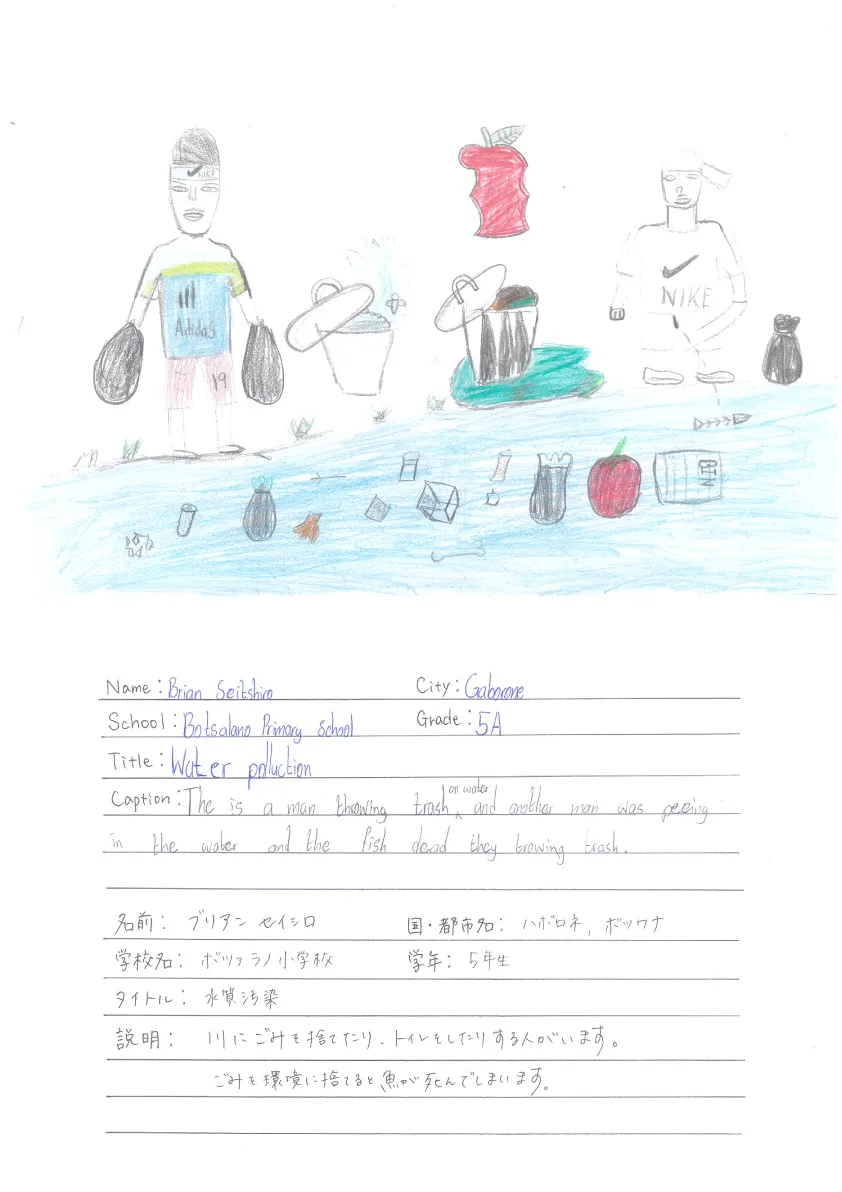 NIKE
Adidas
19
NIKE
Name: Brian Seitshiro City: Gaborone
School: Botsalano Primary School Grade: 5A
Title: Water polluction
Caption: The is a man throwing trash on water and another man was peeing
in the water and the fish dead they browing trash.
名前: ブリアン セイシロ 国・都市名: ハボロネ, ボツワナ
学校名: ボツァラノ小学校 学年: 5年生
タイトル: 水質汚染
説明: 川にごみを捨てたり、トイレをしたりする人がいます。
ごみを環境に捨てると魚が死んでしまいます。